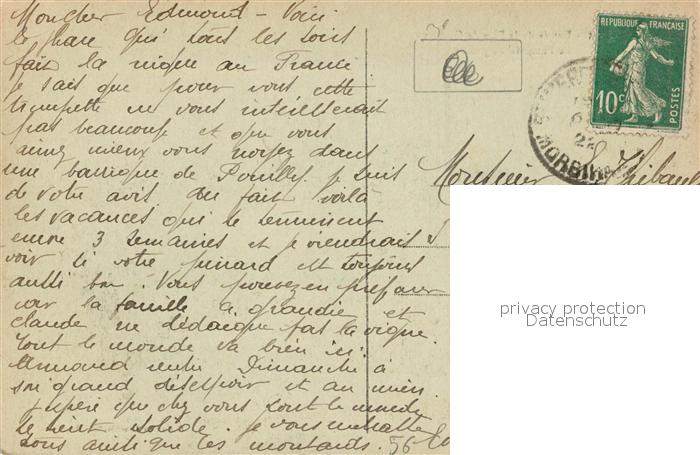 Mon cher Edmont - Voici
le phare qui tous les soirs
fait la nique au France
je sais que pour vous cette
trempette ne vous intéresserait
pas beaucoup et que vous
aimez mieux vous noyez dans
une barrique de Pouilly je suis
de votre avis. Au fait voilà
les vacances qui se terminent
encore 3 semaines et je viendrais
voir si votre pinard est toujours
aussi bon. Vous pouvez en préparer
car la famille a grandie et
Claude ne dédaigne pas la vigne.
Tout le monde va bien ici.
Armand rentre Dimanche à
son grand désespoir et au mien.
J'espère que chez vous tout le monde
se sent solide. Je vous
tous ainsi que les moutards. 56
REPUBLIQUE FRANÇAISE
10c
POSTES
MORBIHAN
Monsieur
privacy protection
Datenschutz